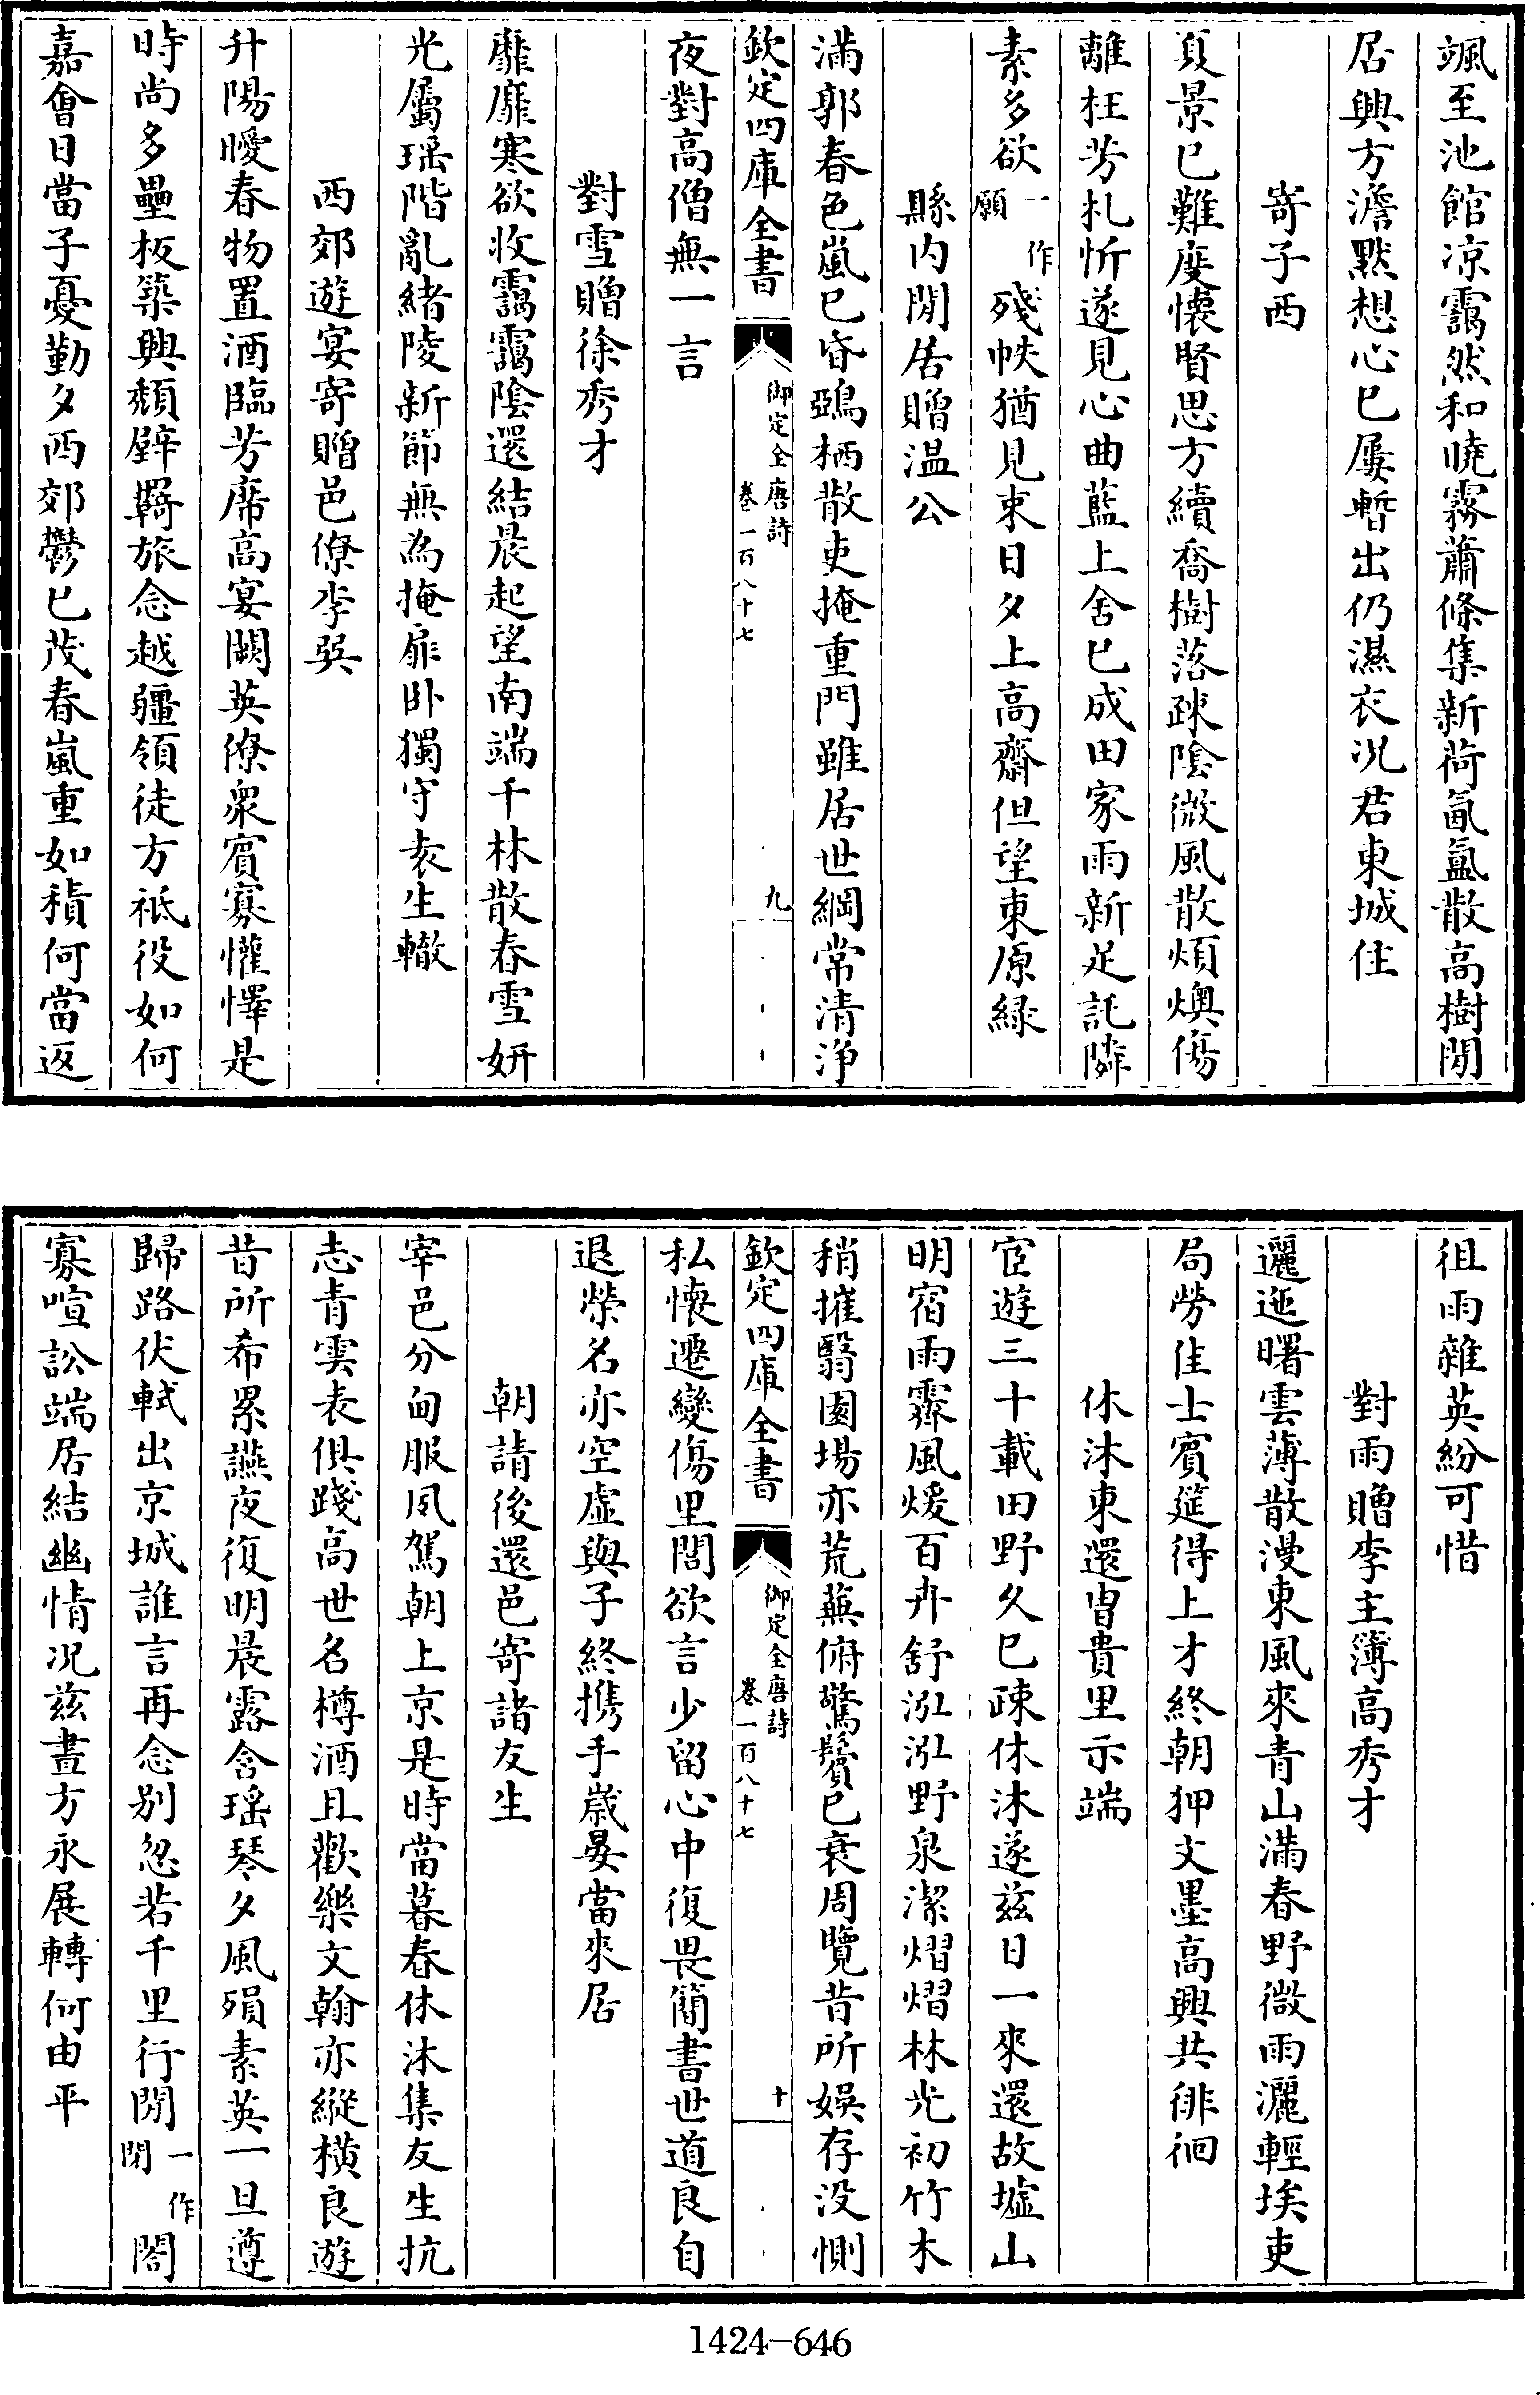 颯至池館凉靄然和曉霧蕭條集新荷氤氳散高樹閒
居興方澹默想心已屢暫出仍濕衣况君東城住
寄子西
夏景已難度懷賢思方續喬樹落疎陰微風散煩燠傷
離枉芳札忻遂見心曲藍上舍已成田家雨新足託隣
素多欲一作願殘帙猶見束日夕上高齋但望東原緑
縣内閒居贈温公
滿郭春色嵐已昏鵶栖散吏掩重門雖居世網常清淨
欽定四庫全書 御定全唐詩 卷一百八十七 九
夜對高僧無一言
對雪贈徐秀才
靡靡寒欲收靄靄陰還結晨起望南端千林散春雪妍
光屬瑶階亂緒陵新節無為掩扉卧獨守袁生轍
西郊遊宴寄贈邑僚李㢲
升陽曖春物置酒臨芳席高宴闕英僚衆賓寡懽懌是
時尚多壘板築興頽壁羇旅念越疆領徒方祗役如何
嘉會日當子憂勤夕西郊鬱已茂春嵐重如積何當返
徂雨雜英紛可惜
對雨贈李主簿高秀才
邐迤曙雲薄散漫東風來青山滿春野微雨灑輕埃吏
局勞佳士賓筵得上才終朝狎文墨高興共徘徊
休沐東還胄貴里示端
宦遊三十載田野久已疎休沐遂兹日一來還故墟山
明宿雨霽風煖百卉舒泓泓野泉潔熠熠林光初竹木
稍摧翳園場亦荒蕪俯驚鬢已衰周覽昔所娱存没惻
欽定四庫全書 御定全唐詩 卷一百八十七 十
私懷遷變傷里閭欲言少留心中復畏簡書世道良自
退榮名亦空虚與子終攜手歲晏當來居
朝請後還邑寄諸友生
宰邑分甸服夙駕朝上京是時當暮春休沐集友生抗
志青雲表俱踐高世名樽酒且歡樂文翰亦縱横良遊
昔所希累讌夜復明晨露含瑶琴夕風殞素英一旦遵
歸路伏軾出京城誰言再念别忽若千里行閒一作閉閤
寡喧訟端居結幽情况兹晝方永展轉何由平
1424-646